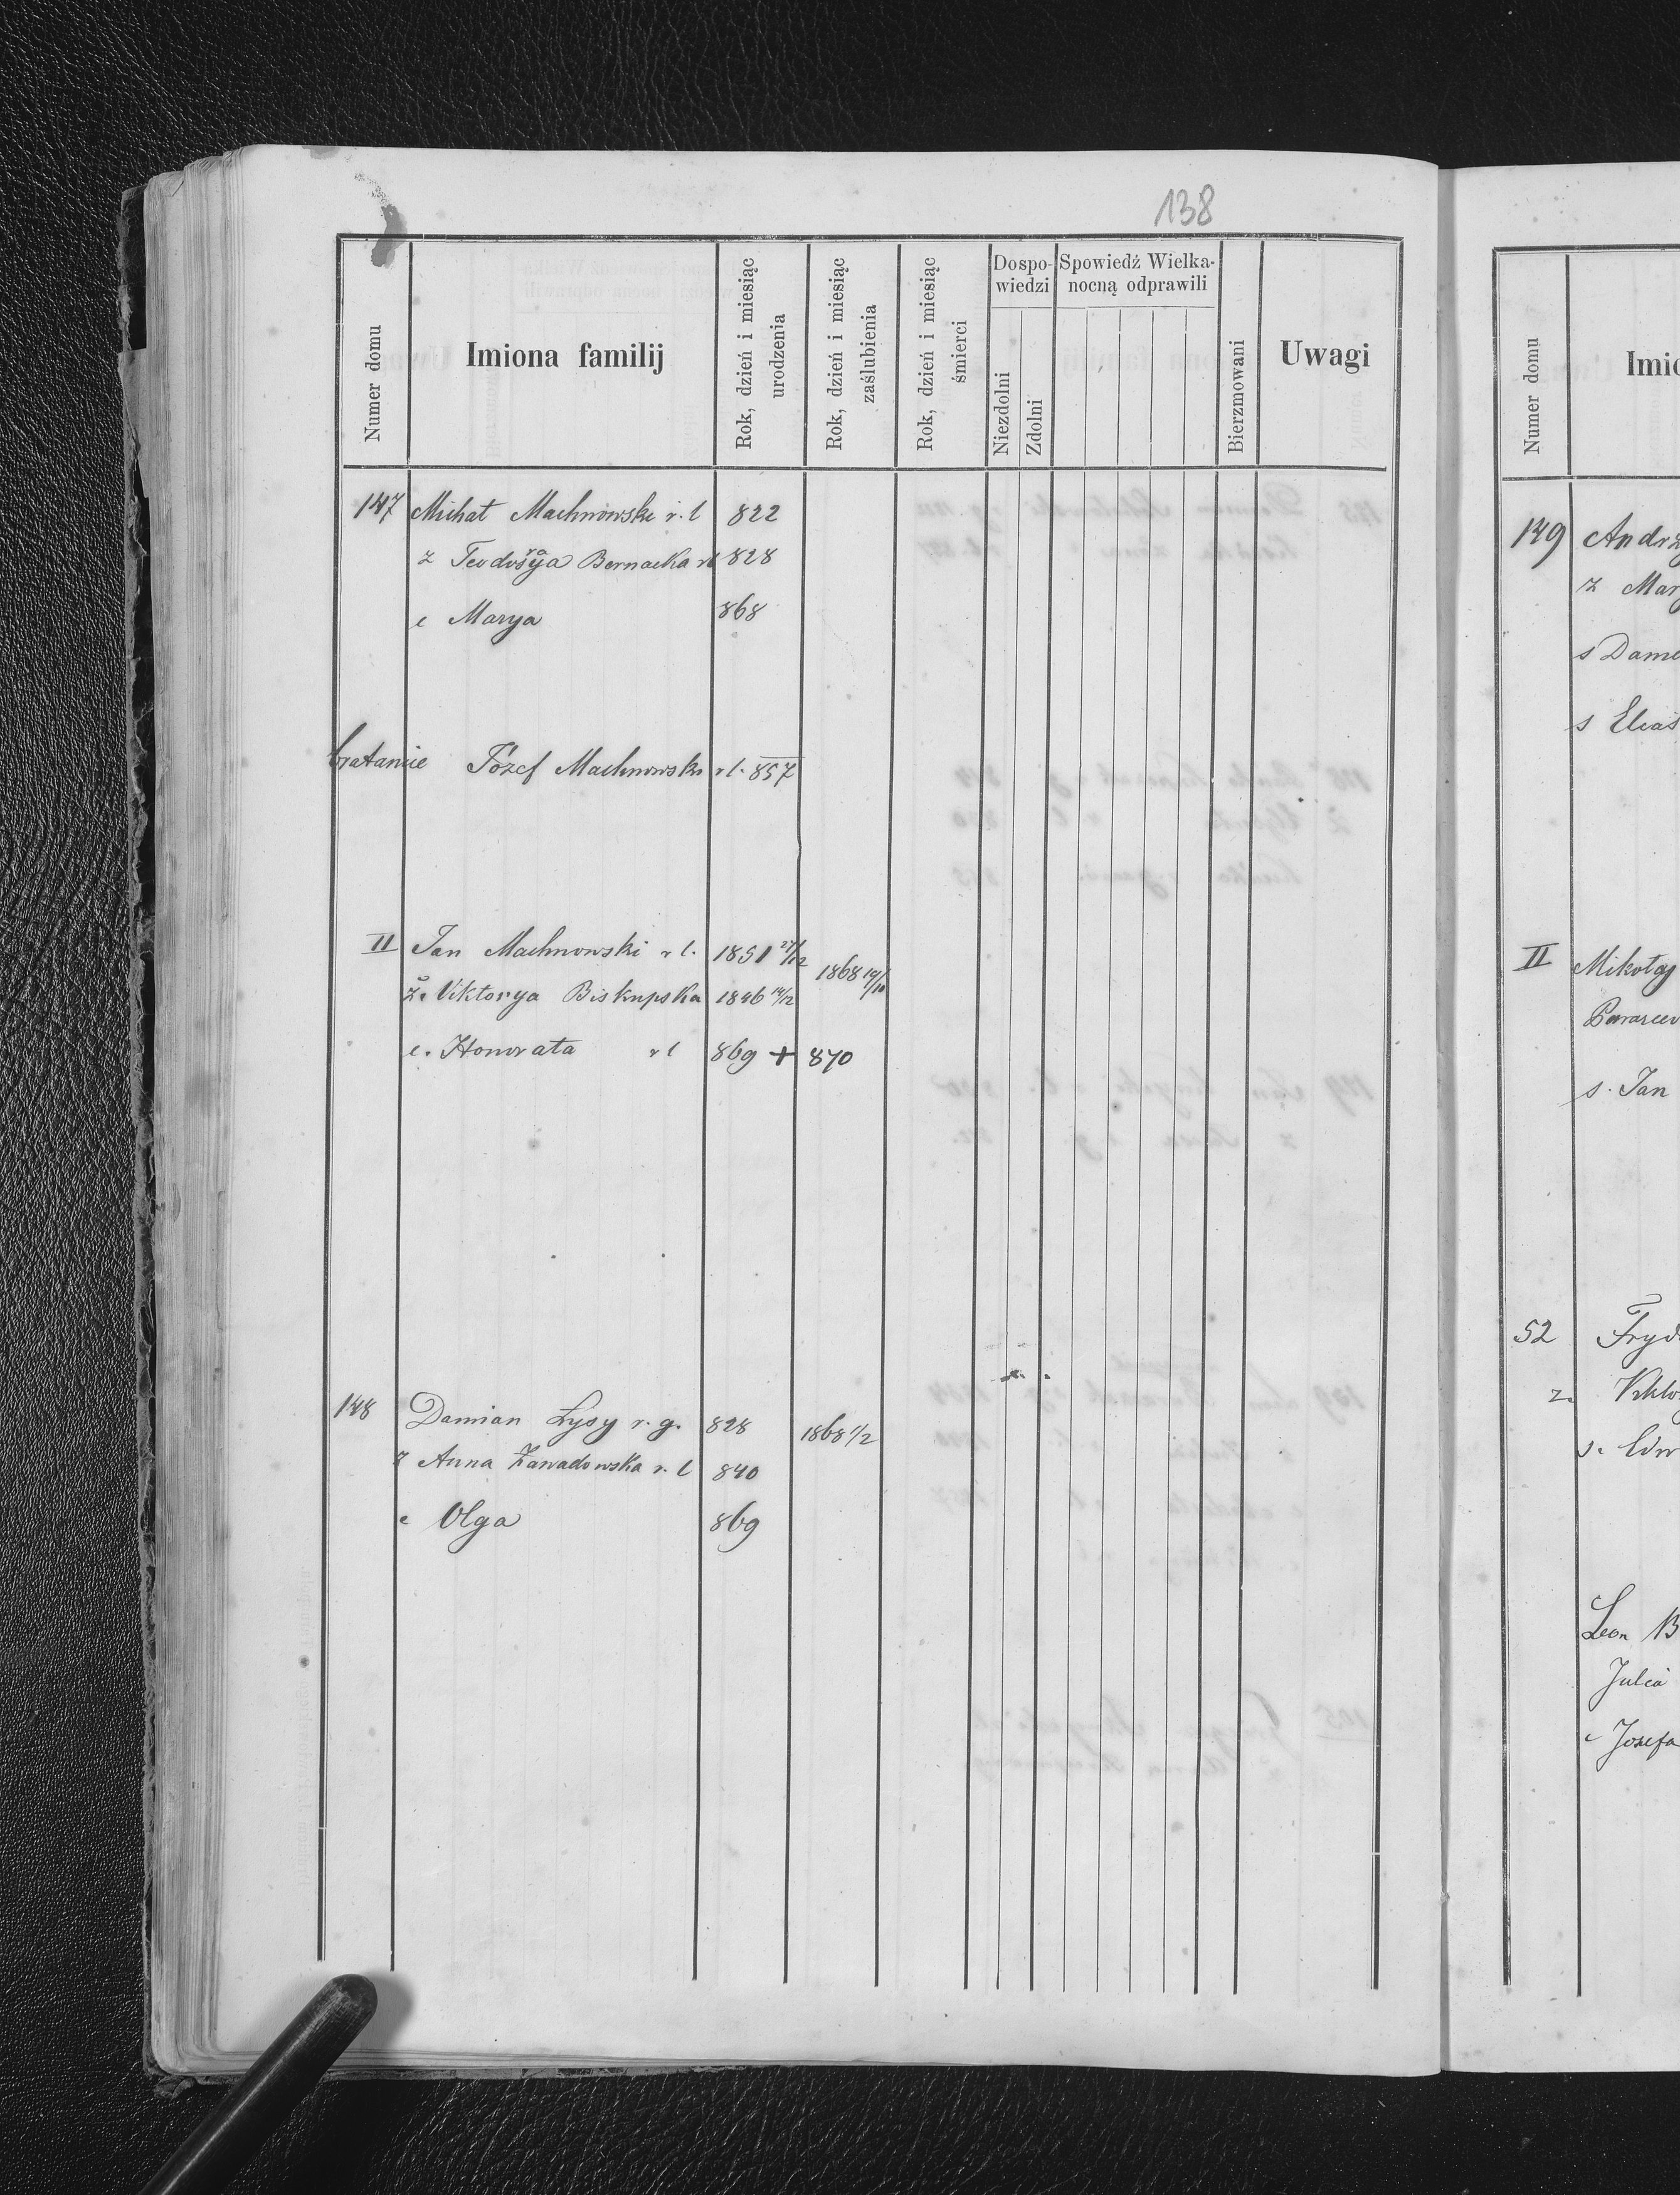 138
Numer domu
Imiona familij
Rok, dzień i miesiąc urodzenia
Rok, dzień i miesiąc zaślubienia
Rok, dzień i miesiąc śmierci
Dospowiedzi
Niezdolni
Zdolni
Spowiedź Wielka-
nocną odprawili
Bierzmowani
Uwagi
147 Michał Machnowski r. l 822
z Teodozya Bernacka rl 828
c Marya 868
Józef Machnowski r l. 857
II Jan Machnowski r l. 1851 27/12 1868 14/10
ż. Viktorya Biskupska 1846 14/12
c. Honorata r l 869 + 870
148 Damian Łysy r. g. 828 1868 1/2
z Anna Zawadowska r. l 840
c Olga 869
Numer domu
Imio
149 Andrz
z Mary
s
s Elias
II Mikołaj
s. Jan
52 Fryd
z. Vikto
s.
Leon B
Julia
c Josefa